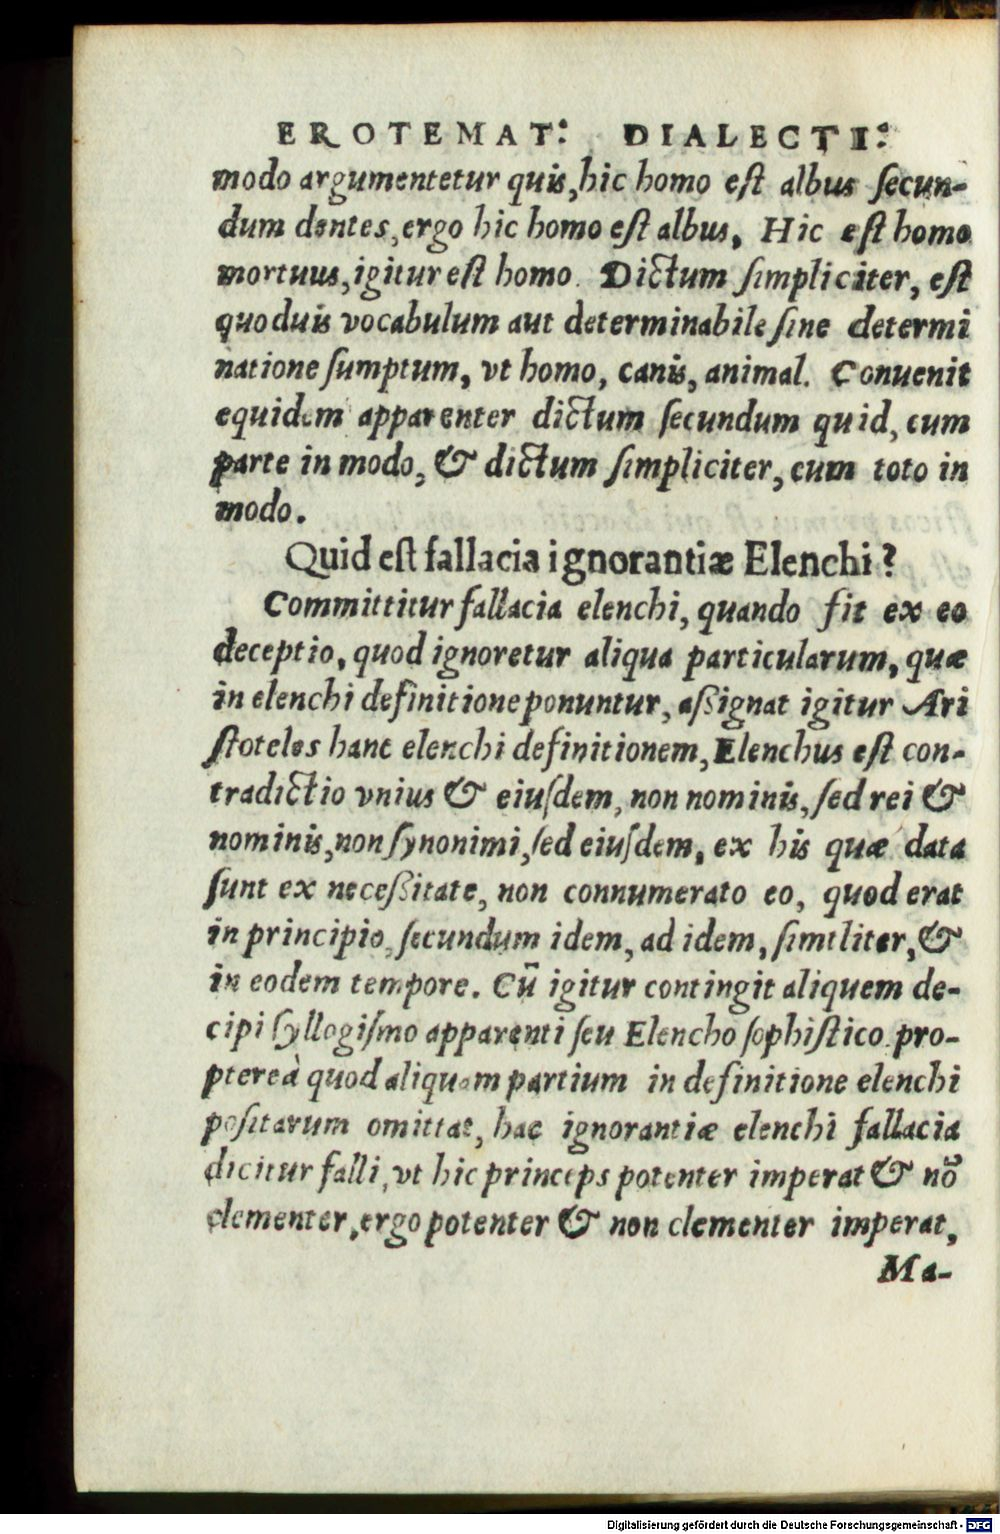 EROTEMAT: DIALECTI:
modo argumentetur quis, hic homo eſt albus ſecun-
dum dentes, ergo hic homo eſt albus, Hic eſt homo
mortuus, igitur eſt homo. Dictum ſimpliciter, eſt
quoduis vocabulum aut determinabile ſine determi
natione ſumptum, vt homo, canis, animal. Conuenit
equidem apparenter dictum ſecundum quid, cum
parte in modo, & dictum ſimpliciter, cum toto in
modo.
Quid eſt fallacia ignorantiæ Elenchi?
Committitur fallacia elenchi, quando fit ex eo
deceptio, quod ignoretur aliqua particularum, quæ
in elenchi definitione ponuntur, aſſignat igitur Ari
ſtoteles hanc elenchi definitionem, Elenchus eſt con-
tradictio vnius & eiuſdem, non nominis, ſed rei &
nominis, non ſynonimi, ſed eiuſdem, ex his quæ data
ſunt ex neceſſitate, non connumerato eo, quod erat
in principio, ſecundum idem, ad idem, ſimiliter, &
in eodem tempore. Cũ igitur contingit aliquem de-
cipi ſyllogiſmo apparenti ſeu Elencho ſophiſtico pro-
ptereà quod aliquam partium in definitione elenchi
poſitarum omittat, hac ignorantiæ elenchi fallacia
dicitur falli, vt hic princeps potenter imperat & nõ
clementer, ergo potenter & non clementer imperat,
Ma-
Digitalisierung gefördert durch die Deutsche Forschungsgemeinschaft - DFG